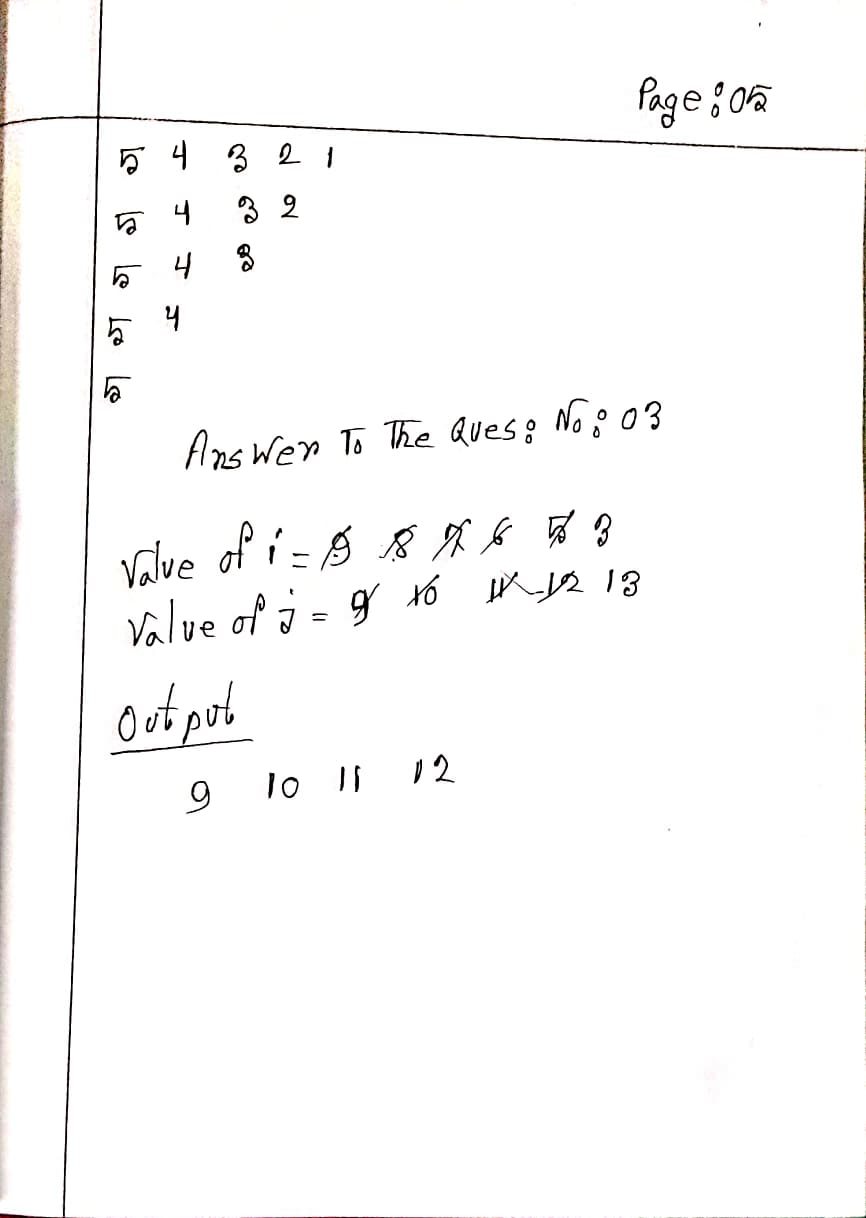 Page: 05
5 4 3 2 1
5 4 3 2
5 4 3
5 4
5
Answer To The Ques: No: 03
Value of i = 9 8 7 6 5 3
Value of j = 9 10 11 12 13
Output
9 10 11 12